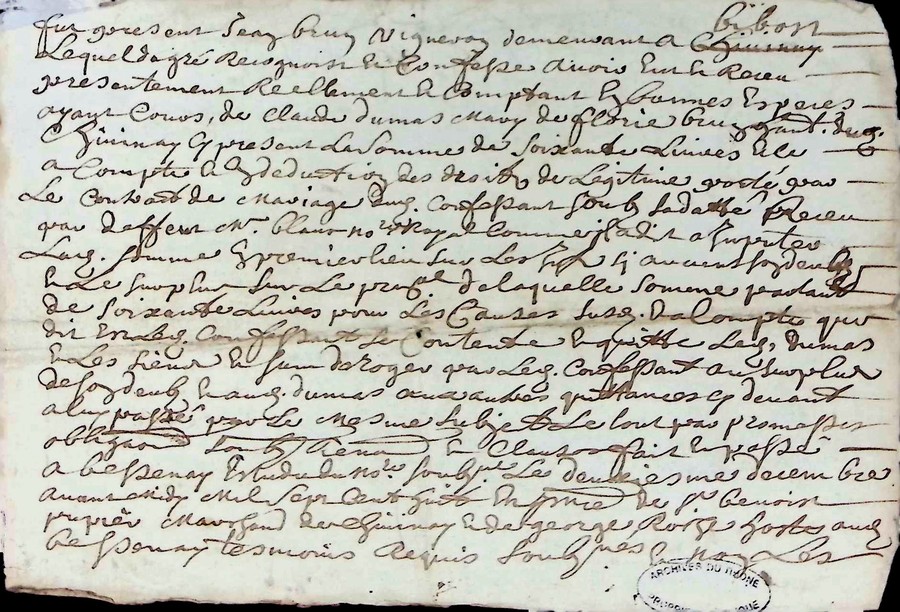 bibost
fut present Jean brun Vigneron demeurant a Chivinay
Lequel de gré Recognoist et Confesse avoir eut et Receu
presentement Reellement et Comptant En bonnes Especes
ayant Cours, de Claude dumas mary de florie brun habitant dud.
Chivinay Cy present La Somme de Soixante Livres et ce
a Compte et En deduction des droits de Legitime porté par
Le Contract de Mariage dud. Confessant Soubs sa datte Receu
par deffunt Me. blanc nore Royal Comme Il a dit a Imputer
Lad. Somme En premier lieu sur Les sy aucuns sont deubs
Et Le surplus sur Le prinpal de laquelle Somme partant
de Soixante Livres pour Les Causes susd. Et a Compte que
dit Est Led. Confessant Se Contente Et quitte Led. dumas
Et Les siens Et sans deroger par Led. Confessant au surplus
de son deub Et aud. dumas aux autres quittances Cy devant
a luy passé par Le mesme Subject Le tout par promesses
obligaon Soubson Renon Et Clauses fait Et passé
a bessenay Estude du Nore soubsne Le deuxiesme decembre
avant midy Mil Sept Cent huit En pnce de Sr benoist
Marchand de Chivinay Et de george hoste aud.
bessenay tesmoins Requis Soubsnés Et non Les
ARCHIVES DU RHONE